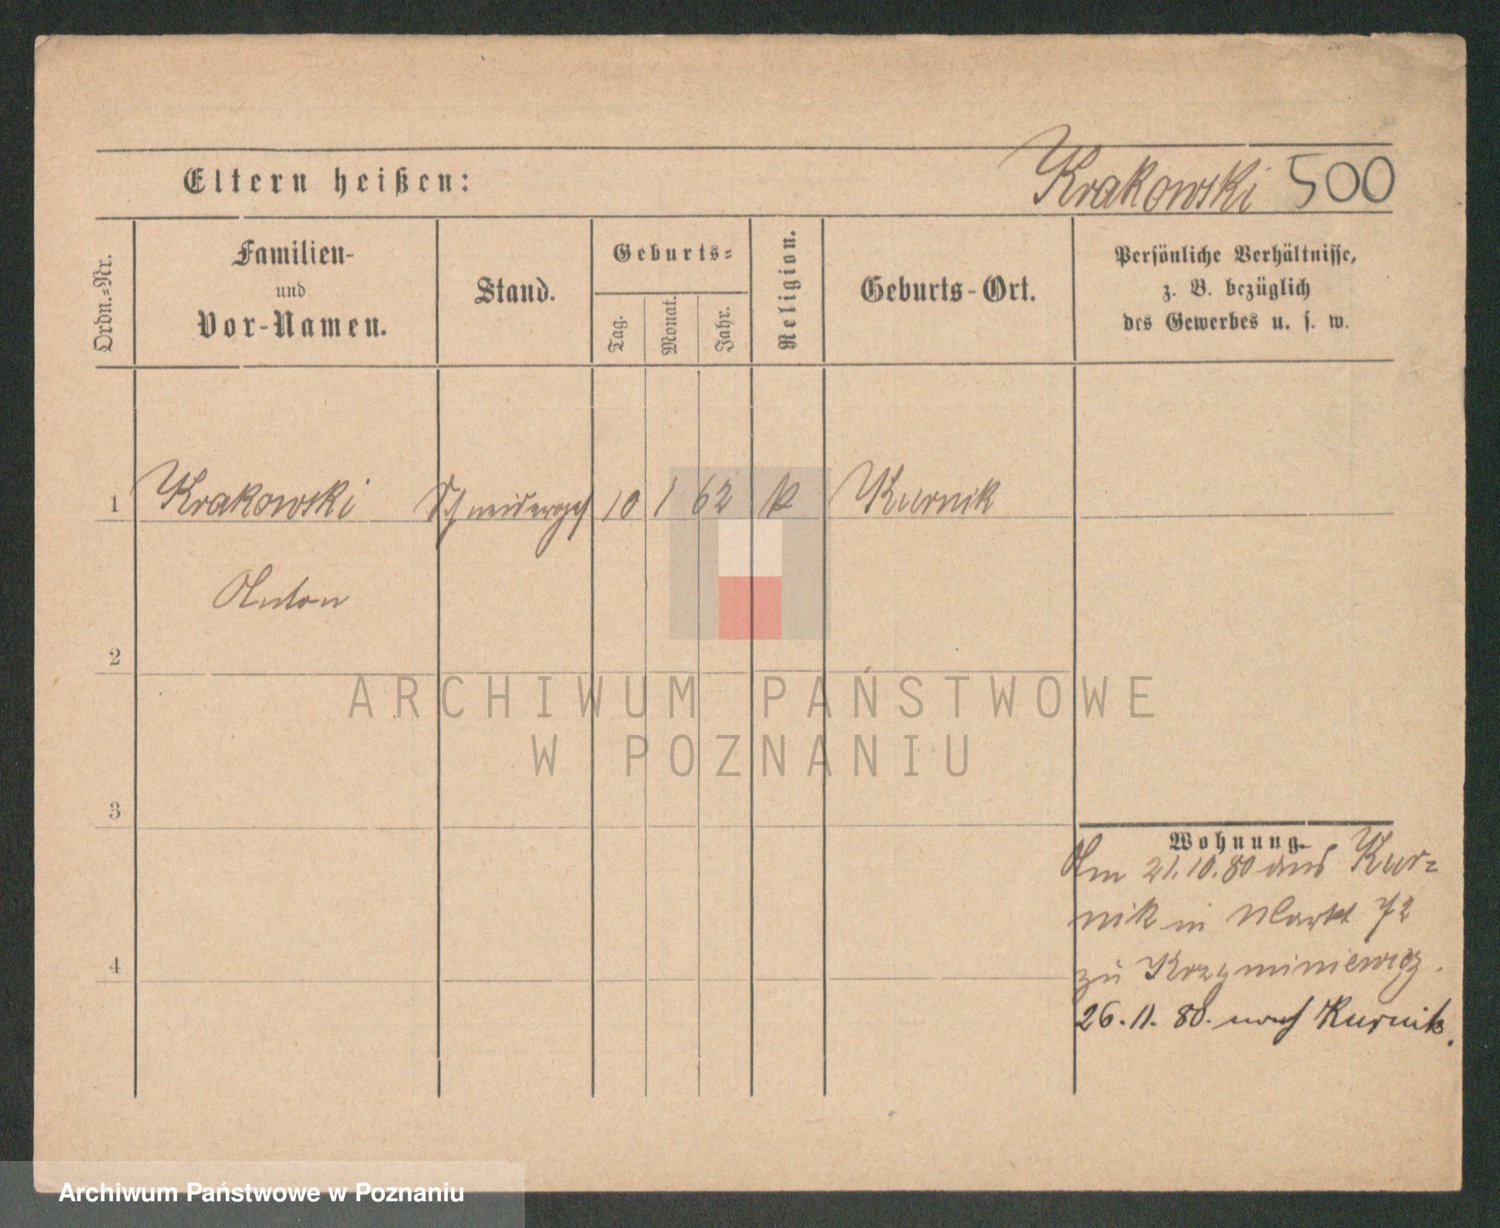 Eltern heißen:
Krakowski 500
Ordn.=Nr.
Familien-
und
Vor-Namen.
Stand.
Geburts=
Tag.
Monat.
Jahr.
Religion.
Geburts-Ort.
Persönliche Verhältnisse,
z. B. bezüglich
des Gewerbes u. s. w.
1 Krakowski Schneiderges 10 1 62 k Kurnik
Anton
2
ARCHIWUM PAŃSTWOWE
W POZNANIU
3
Wohnung.
Am 21.10.80 aus Kur=
nik in Markt 72
zu Krzyminiewicz.
4
26.11.80. nach Kurnik.
Archiwum Państwowe w Poznaniu